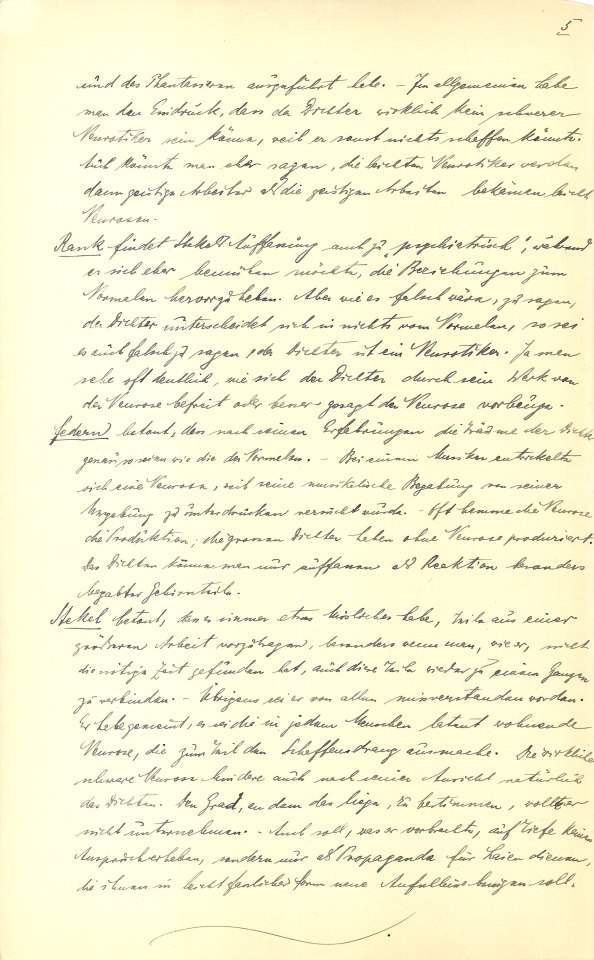 5
und des Phantasieren ausgeführt habe. – Im allgemeinen habe
man den Eindruck, dass der Dichter wirklich kein schwerer
Neurotiker sein könne, weil er sonst nichts schaffen könnte.
Auch könnte man eher sagen, die leichten Neurotiker werden
dann geistige Arbeiter als die geistigen Arbeiter bekämen leicht
Neurosen.
Rank findet Stekels Auffassung auch zu „psychiatrisch“, während
er sich eher bemühen möchte, die Beziehungen zum
Normalen hervorzuheben. Aber wie es falsch wäre, zu sagen,
der Dichter unterscheidet sich in nichts vom Normalen, so sei
es auch falsch zu sagen, der Dichter ist ein Neurotiker. Ja man
sehe oft deutlich, wie sich der Dichter durch sein Werk von
der Neurose befreit oder besser gesagt der Neurose vorbeuge.
Federn betont, dass nach seinen Erfahrungen die Träume der Dichter
genau so seien wie die der Normalen. – Bei einem Musiker entwickelte
sich eine Neurose, weil seine musikalische Begabung von seiner
Umgebung zu unterdrücken versucht wurde. – Oft hemme die Neurose
die Produktion; die grossen Dichter haben ohne Neurose produziert.
Das Dichten könne man nur auffassen als Reaktion besonders
begabter Gehirnteile.
Stekel betont, dass es immer etwas Missliches habe, Teile aus einer
grösseren Arbeit vorzutragen, besonders wenn man, wie er, nicht
die nötige Zeit gefunden hat, auch diese Teile wieder zu einem Ganzen
zu verbinden. – Übrigens sei er von allen missverstanden worden.
Er habe gemeint, es sei die in jedem Menschen latent wohnende
Neurose, die zum Teil den Schaffensdrang ausmache. Die wirkliche
schwere Neurose hindere auch nach seiner Ansicht natürlich
das Dichten. Den Grad, an dem das liege, zu bestimmen, wollte er
nicht unternehmen. – Auch soll, was er vorbrachte, auf Tiefe keinen
Anspruch erheben, sondern nur als Propaganda für Laien dienen,
die ihnen in leicht fasslicher Form neue Aufschlüsse bringen soll.